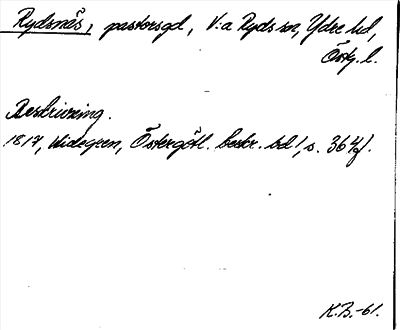 Rydsnäs, pastorsgd, V:a Ryds sn, Ydre hd,
Östg. l.
Beskrivning.
1817, Widegren, Östergötl. beskr. bd 1, s. 364f.
K.B.-61.